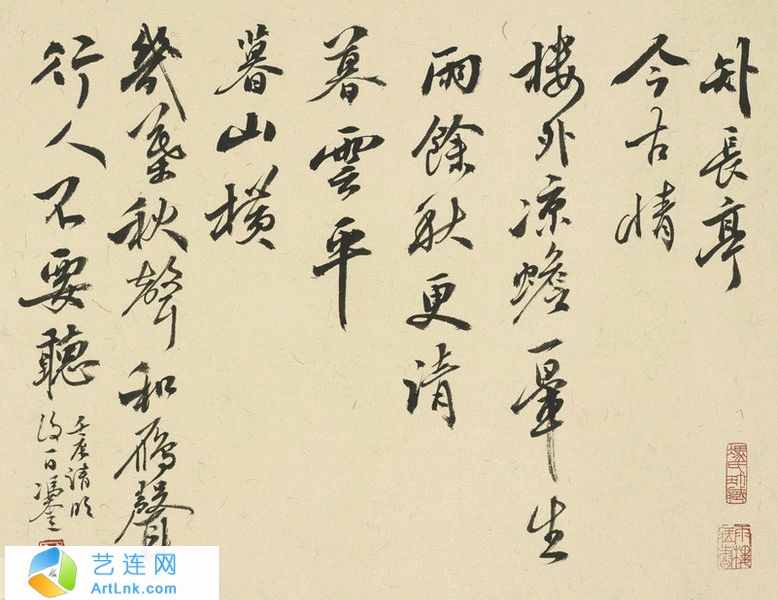 短長亭
今古情
楼外凉蟾一暈生
雨餘秋更清
暮雲平
暮山横
幾葉秋聲和雁聲
行人不要聽
壬辰清明
後一日
艺连网
ArtLnk.com